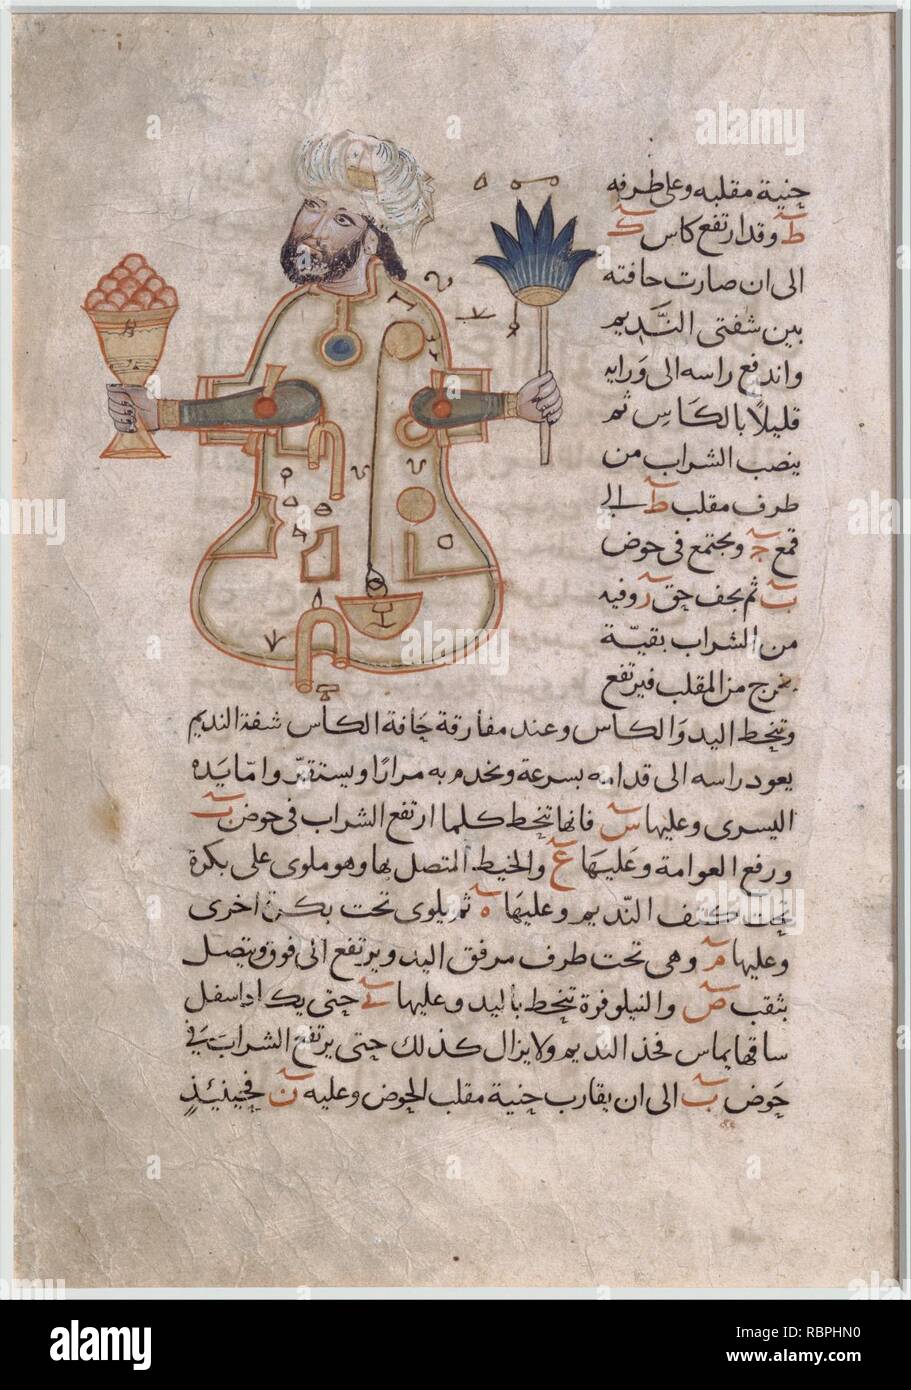 جنية مقلبه وعلى طرفه
ط وقد ارتفع كاس ك
الى ان صارت حافته
بين شفتى النَّديم
واندفع راسه الى ورايه
قليلاً بالكَاسِ ثم
ينصب الشراب من
طرف مقلب ط الى
قمع ج ويجتمع فى حوض
ب ثم يجف حق ز وفيه
من الشراب بقيّة
يخرج من المقلب فيرتفع
وتنحط اليد وَالكاس وعند مفارقة حَافة الكاس شفة النديم
يعود راسه الى قدامه بسرعة ويخدم به مرارًا ويستقرّ واما يَده
اليسرى وعليها س فانها تنحط كلما ارتفع الشراب فى حوض ب
ورفع العوامة وعَليهَا ع والخيط المتصل بها وهو ملوى على بكرة
تحت كتف النّديم وعليهَا ه ثم يلوى تحت بكرة اخرى
وعليها م وهى تحت طرف مرفق اليد ويرتفع الى فوق ويتصل
بثقب ص والنيلوفرة تنحط باليد وعليها ف حتى يكاد اسفل
ساقها يماس فخذ النديم ولا يزال كذلك حتى يرتفع الشراب فى
حَوض ب الى ان يقارب حنية مقلب الحوض وعليه ن فحينئذٍ
alamy
alamy stock photo
Image ID: RBPHN0
www.alamy.com